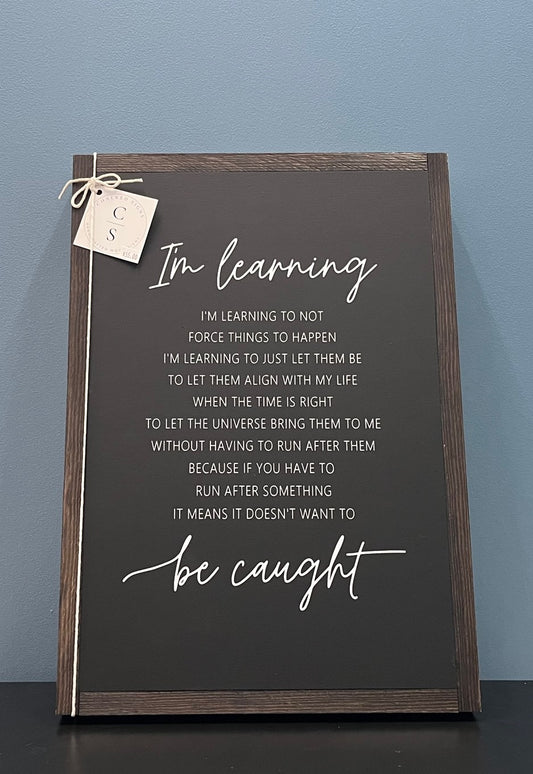 C
S
I'm learning
I'M LEARNING TO NOT
FORCE THINGS TO HAPPEN
I'M LEARNING TO JUST LET THEM BE
TO LET THEM ALIGN WITH MY LIFE
WHEN THE TIME IS RIGHT
TO LET THE UNIVERSE BRING THEM TO ME
WITHOUT HAVING TO RUN AFTER THEM
BECAUSE IF YOU HAVE TO
RUN AFTER SOMETHING
IT MEANS IT DOESN'T WANT TO
be caught